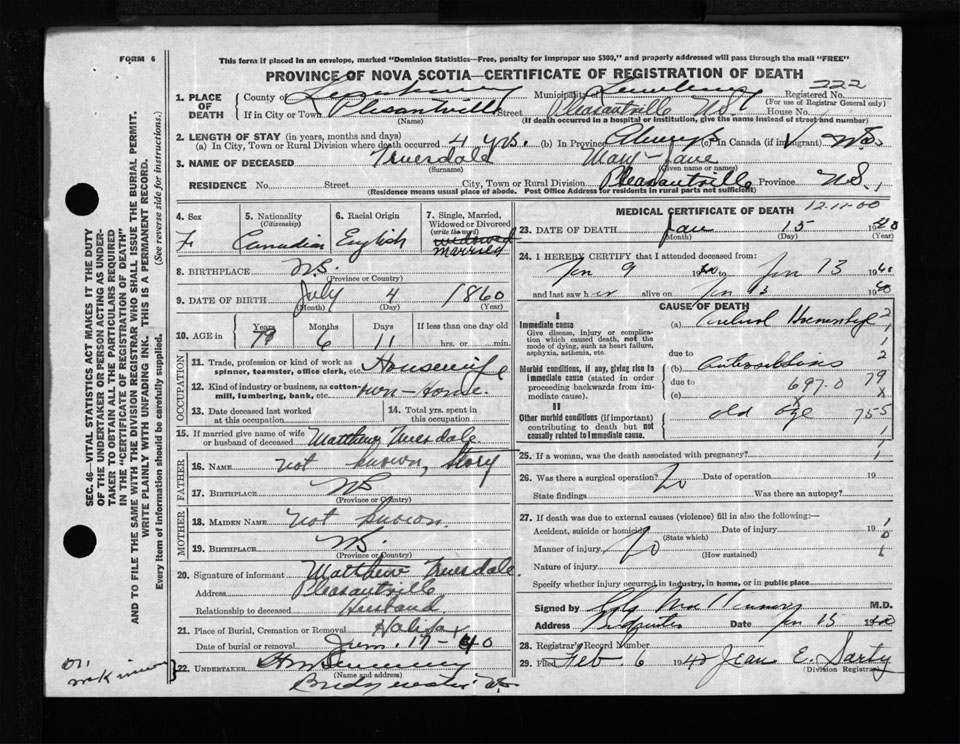 FORM 6
This form if placed in an envelope, marked "Dominion Statistics—Free, penalty for improper use $300," and properly addressed will pass through the mail "FREE"
PROVINCE OF NOVA SCOTIA—CERTIFICATE OF REGISTRATION OF DEATH
222
1. PLACE OF DEATH County of Lunenburg Municipality of Lunenburg Registered No.
(For use of Registrar General only)
If in City or Town Pleasantville Street Pleasantville N.S. House No.
(Name) (If death occurred in a hospital or institution, give the name instead of street and number)
2. LENGTH OF STAY (in years, months and days)
(a) In City, Town or Rural Division where death occurred 4 yrs. (b) In Province Always (c) In Canada (if immigrant)
3. NAME OF DECEASED Truesdale Mary-Jane
(Surname) (Given name or names)
RESIDENCE No. Street City, Town or Rural Division Pleasantville Province N.S.
(Residence means usual place of abode. Post Office Address for residents in rural parts not sufficient)
4. Sex F.
5. Nationality (Citizenship) Canadian
6. Racial Origin English
7. Single, Married, Widowed or Divorced (write the word) widowed married
8. BIRTHPLACE N.S.
(Province or Country)
9. DATE OF BIRTH July 4 1860
(Month) (Day) (Year)
10. AGE in Years 79 Months 6 Days 11 If less than one day old
hrs. or min.
OCCUPATION
11. Trade, profession or kind of work as spinner, teamster, office clerk, etc. Housewife
12. Kind of industry or business, as cotton-mill, lumbering, bank, etc. own-Home.
13. Date deceased last worked at this occupation
14. Total yrs. spent in this occupation
15. If married give name of wife or husband of deceased Matthew Truesdale.
FATHER
16. NAME not known, Story
17. BIRTHPLACE N.S.
(Province or Country)
MOTHER
18. MAIDEN NAME not known.
19. BIRTHPLACE N.S.
(Province or Country)
20. Signature of informant Matthew Truesdale.
Address Pleasantville
Relationship to deceased Husband.
21. Place of Burial, Cremation or Removal Halifax
Date of burial or removal 17-40
22. UNDERTAKER
(Name and address)
Bridgewater
MEDICAL CERTIFICATE OF DEATH 12-11-00
23. DATE OF DEATH Jan 15 1940
(Month) (Day) (Year)
24. I HEREBY CERTIFY that I attended deceased from:
Jan 9 1940 to Jan 13 1940
and last saw her alive on Jan 13 1940
CAUSE OF DEATH
I
Immediate cause
Give disease, injury or complication which caused death, not the mode of dying, such as heart failure, asphyxia, asthenia, etc.
(a) Cerebral Hemorrhage
due to
Morbid conditions, if any, giving rise to immediate cause (stated in order proceeding backwards from immediate cause).
(b) Arteriosclerosis
due to 697.0 79
(c)
II
Other morbid conditions (if important) contributing to death but not causally related to immediate cause.
old age 755
25. If a woman, was the death associated with pregnancy?
26. Was there a surgical operation? No Date of operation 19
State findings Was there an autopsy?
27. If death was due to external causes (violence) fill in also the following:—
Accident, suicide or homicide Date of injury 19
(State which)
Manner of injury No
(How sustained)
Nature of injury
Specify whether injury occurred in Industry, in home, or in public place
Signed by M.D.
Address Bridgewater Date Jan 15 1940
28. Registrar's Record Number
29. Filed Feb. 6 1940 Jean E. Sarty
(Division Registrar)
SEC. 46—VITAL STATISTICS ACT MAKES IT THE DUTY
OF THE UNDERTAKER OR PERSON ACTING AS UNDERTAKER TO OBTAIN ALL THE PARTICULARS REQUIRED
IN THE "CERTIFICATE OF REGISTRATION OF DEATH"
AND TO FILE THE SAME WITH THE DIVISION REGISTRAR WHO SHALL ISSUE THE BURIAL PERMIT.
WRITE PLAINLY WITH UNFADING INK. THIS IS A PERMANENT RECORD.
Every item of information should be carefully supplied. (See reverse side for instructions.)
Dr.
McKinnon